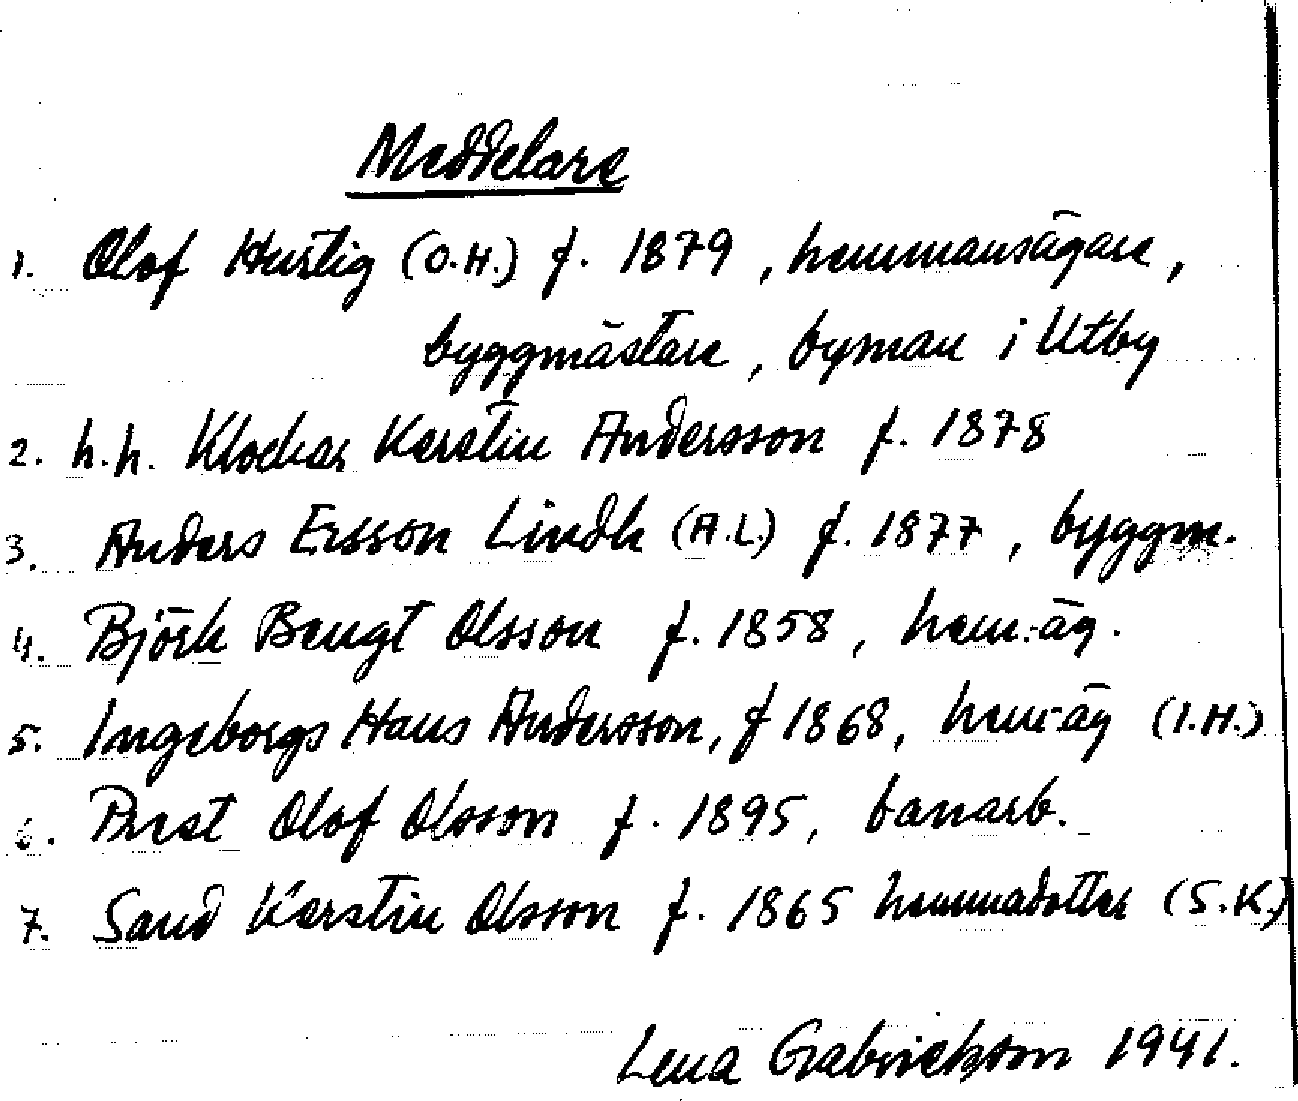 Meddelare
1. Olof Hurtig (O.H.) f. 1879, hemmansägare,
byggmästare, byman i Utby
2. h.h. Klockar Kerstin Andersson f. 1878
3. Anders Ersson Lindh (A.L.) f. 1877, byggm.
4. Björk Bengt Olsson f. 1858, hem.äg.
5. Ingeborgs Hans Andersson, f 1868, hem-äg (I.H.)
6. Prest Olof Olsson f. 1895, banarb.
7. Sand Kerstin Olsson f. 1865 hemmadotter (S.K.)
Lena Gabrielsson 1941.